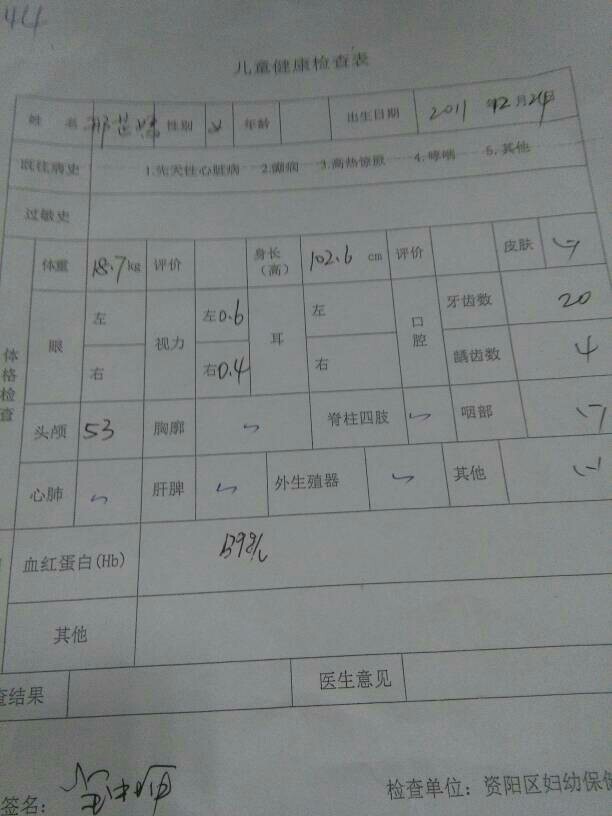 44
儿童健康检查表
姓 名 性别 女 年龄 出生日期 2011 年 12 月 24 日
既往病史 1.先天性心脏病 2.癫痫 3.高热惊厥 4.哮喘 5.其他
过敏史
体格检查
体重 18.7 kg 评价 身长（高） 102.6 cm 评价 皮肤
眼 左 视力 左 0.6 耳 左 口腔 牙齿数 20
右 右 0.4 右 龋齿数 4
头颅 53 胸廓 脊柱四肢 咽部
心肺 肝脾 外生殖器 其他
血红蛋白(Hb) 139g/L
其他
查结果 医生意见
签名： 检查单位：资阳区妇幼保健